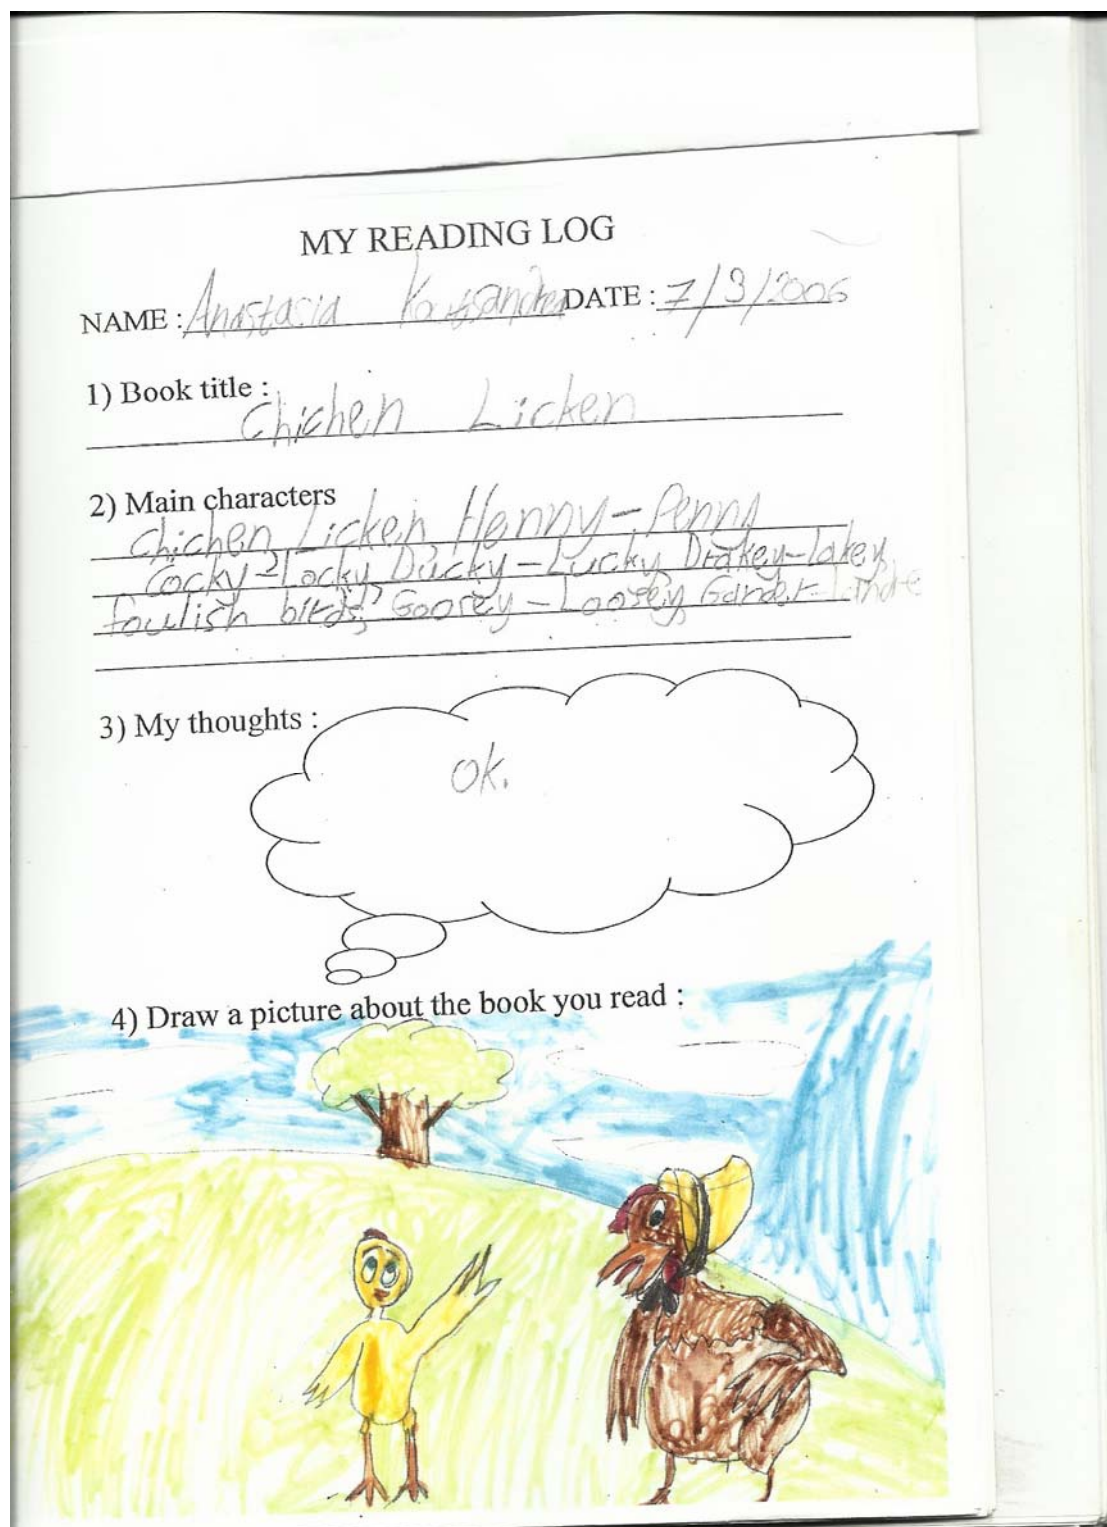 MY READING LOG
NAME : Anastasia DATE : 7/3/2006
1) Book title :
Chichen Licken
2) Main characters
Chichen Licken Henny-Penny
Cocky-Locky, Ducky-Lucky, Drakey-Lakey,
foulish birds, Goosey-Loosey, Gander-Lande
3) My thoughts :
Ok.
4) Draw a picture about the book you read :